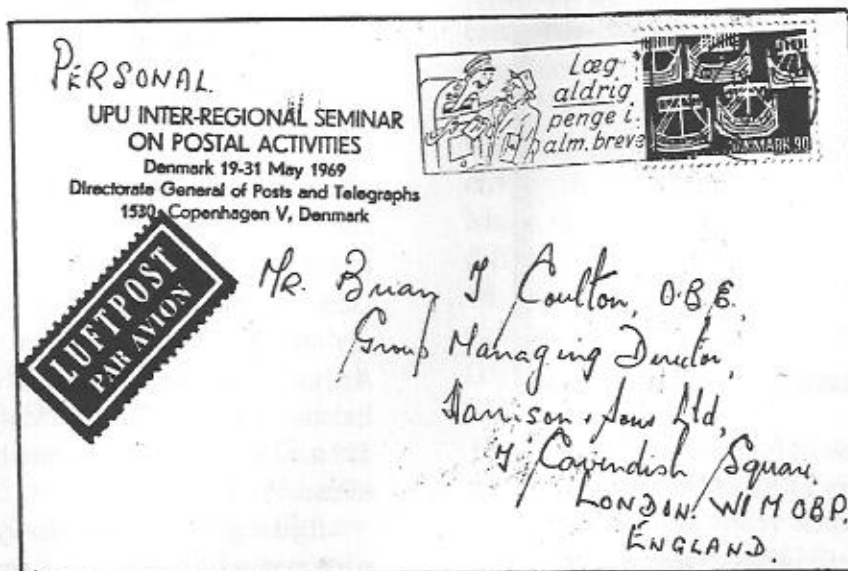 PERSONAL
UPU INTER-REGIONAL SEMINAR
ON POSTAL ACTIVITIES
Denmark 19-31 May 1969
Directorate General of Posts and Telegraphs
1530, Copenhagen V, Denmark
Læg
aldrig
penge i
alm. breve
DANMARK 90
LUFTPOST
PAR AVION
Mr. Brian J Coulton, O.B.E.,
Group Managing Director,
Harrison & Sons Ltd,
Cavendish Square,
LONDON. W1M 0BP.
ENGLAND.